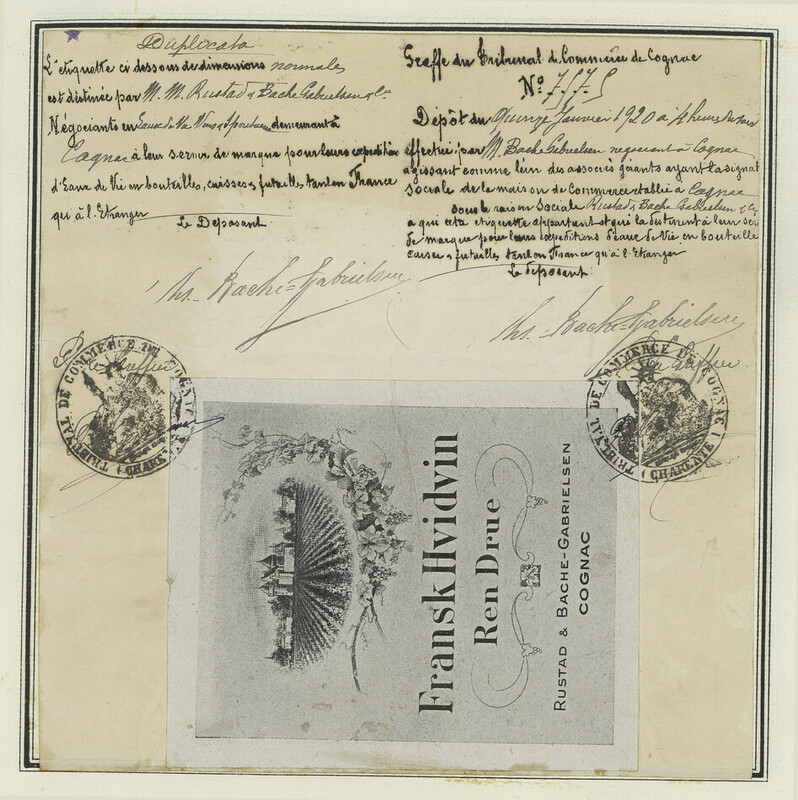 Duplicata
L'étiquette ci dessous de dimensions normales
est destinée par M. M. Rustad & Bache Gabrielsen & Cie
Négociants en Eaux de Vie Vins & Spiritueux demeurant à
Cognac à leur servir de marque pour leurs expéditions
d'Eaux de Vie en bouteilles, caisses & futailles tant en France
qu'à l'Etranger
Le Déposant
Ths. Bache-Gabrielsen
Le Greffier
TRIBUNAL DE COMMERCE DE COGNAC (CHARENTE)
Greffe du Tribunal de Commerce de Cognac
Nº
Dépôt du Quinze Janvier 1920 à 4 heures du soir
effectué par M. Bache Gabrielsen négociant à Cognac
agissant comme l'un des associés gérants ayant la signat
Sociale de la maison de Commerce établie à Cognac
sous la raison Sociale Rustad & Bache Gabrielsen & Cie
a qui cette étiquette appartient et qui la destinent à leur ser
de marque pour leurs expéditions d'eaux de Vie en bouteille
caisses & futailles tant en France qu'à l'Etranger
Le déposant
Ths. Bache-Gabrielsen
Le Greffier
TRIBUNAL DE COMMERCE DE COGNAC (CHARENTE)
Fransk Hvidvin
Ren Drue
RUSTAD & BACHE-GABRIELSEN
COGNAC